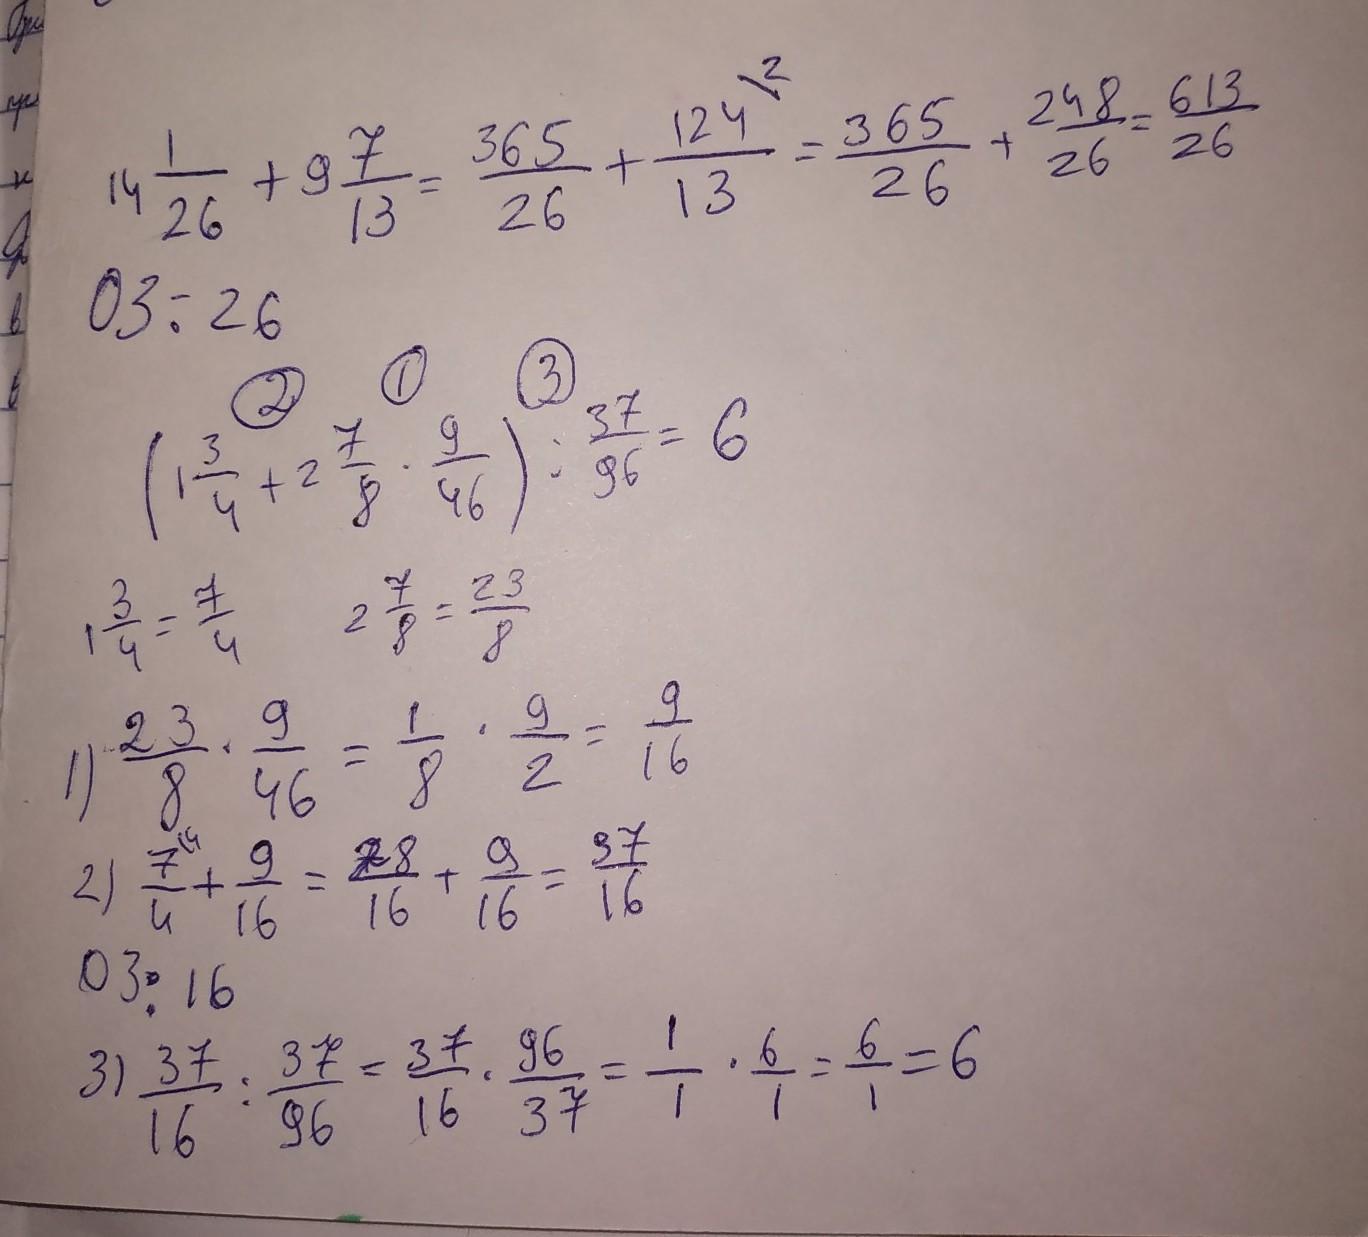 14 1/26 + 9 7/13 = 365/26 + 124/13 \2 = 365/26 + 248/26 = 613/26
ОЗ: 26
② ① ③
(1 3/4 + 2 7/8 · 9/46) : 37/96 = 6
1 3/4 = 7/4 2 7/8 = 23/8
1) 23/8 · 9/46 = 1/8 · 9/2 = 9/16
2) 7/4 \4 + 9/16 = 28/16 + 9/16 = 37/16
ОЗ: 16
3) 37/16 : 37/96 = 37/16 · 96/37 = 1/1 · 6/1 = 6/1 = 6